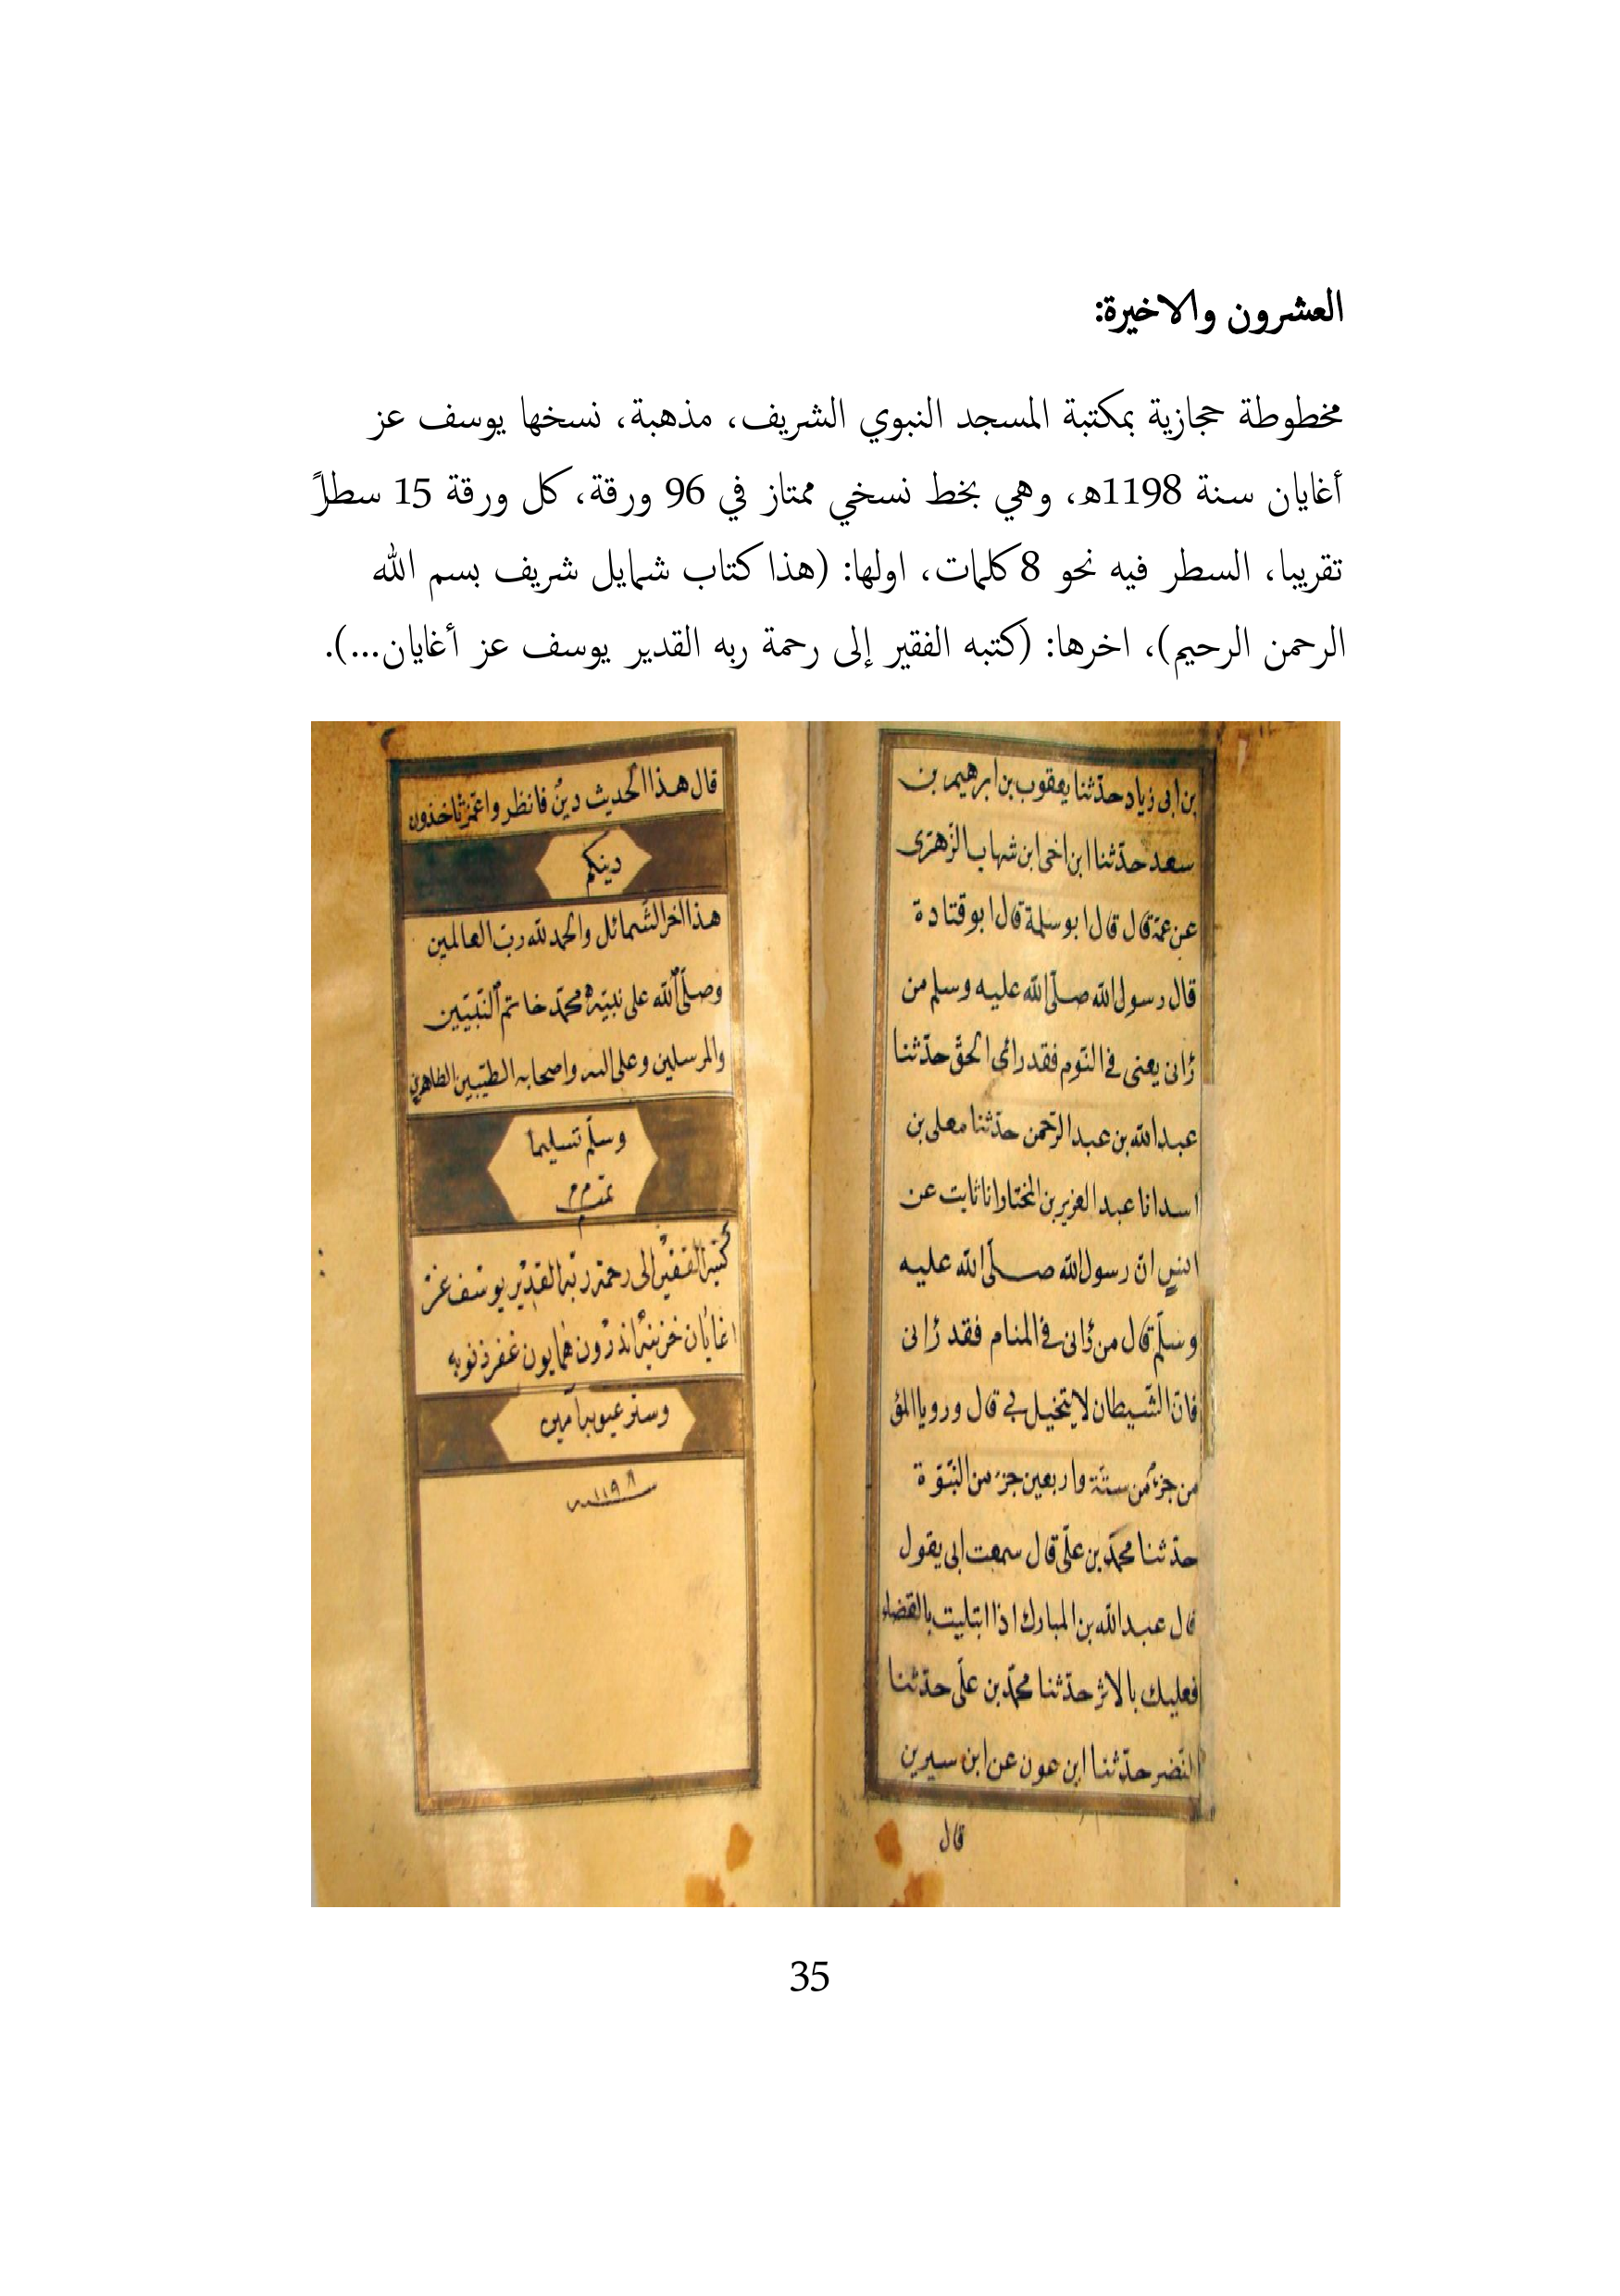 العشرون والاخيرة:
مخطوطة حجازية بمكتبة المسجد النبوي الشريف، مذهبة، نسخها يوسف عز
أغايان سنة 1198هـ، وهي بخط نسخي ممتاز في 96 ورقة، كل ورقة 15 سطرًا
تقريبا، السطر فيه نحو 8 كلمات، اولها: (هذا كتاب شمايل شريف بسم الله
الرحمن الرحيم)، اخرها: (كتبه الفقير إلى رحمة ربه القدير يوسف عز أغايان...).
بن ابى زياد حدّثنا يعقوب بن ابرهيم بن
سعد حدّثنا ابن اخى ابن شهاب الزّهرى
عن عمّه قال قال ابو سلمة قال ابو قتادة
قال رسول الله صلّى الله عليه وسلم من
رٔانى يعنى فى النّوم فقد رائ الحقّ حدّثنا
عبد الله بن عبد الرّحمن حدّثنا معلى بن
اسد انا عبد العزيز بن المختار انا ثابت عن
انس ان رسول الله صلّى الله عليه
وسلّم قال من رٔانى فى المنام فقد رٔانى
فانّ الشّيطان لا يتخيل بى قال ورويا المؤ
من جزء من ستّة واربعين جزء من النّبوّة
حدّثنا محمّد بن علىّ قال سمعت ابى يقول
قال عبد الله بن المبارك اذا ابتليت بالقضاء
فعليك بالاثر حدّثنا محمّد بن علىّ حدّثنا
النّضر حدّثنا ابن عون عن ابن سيرين
قال
قال هذا الحديث دين فانظروا عمّن تاخذون
دينكم
هذا اخر الشّمائل والحمد لله ربّ العالمين
وصلّى الله على نبيّه محمّد خاتم النّبيّين
والمرسلين وعلى اله واصحابه الطّيّبين الطاهرين
وسلّم تسليما
كتبه الفقير الى رحمة ربّه القدير يوسف عز
اغايان خزينه اندرون همايون غفر ذنوبه
وستر عيوبه آمين
سنه ١١٩٨
35